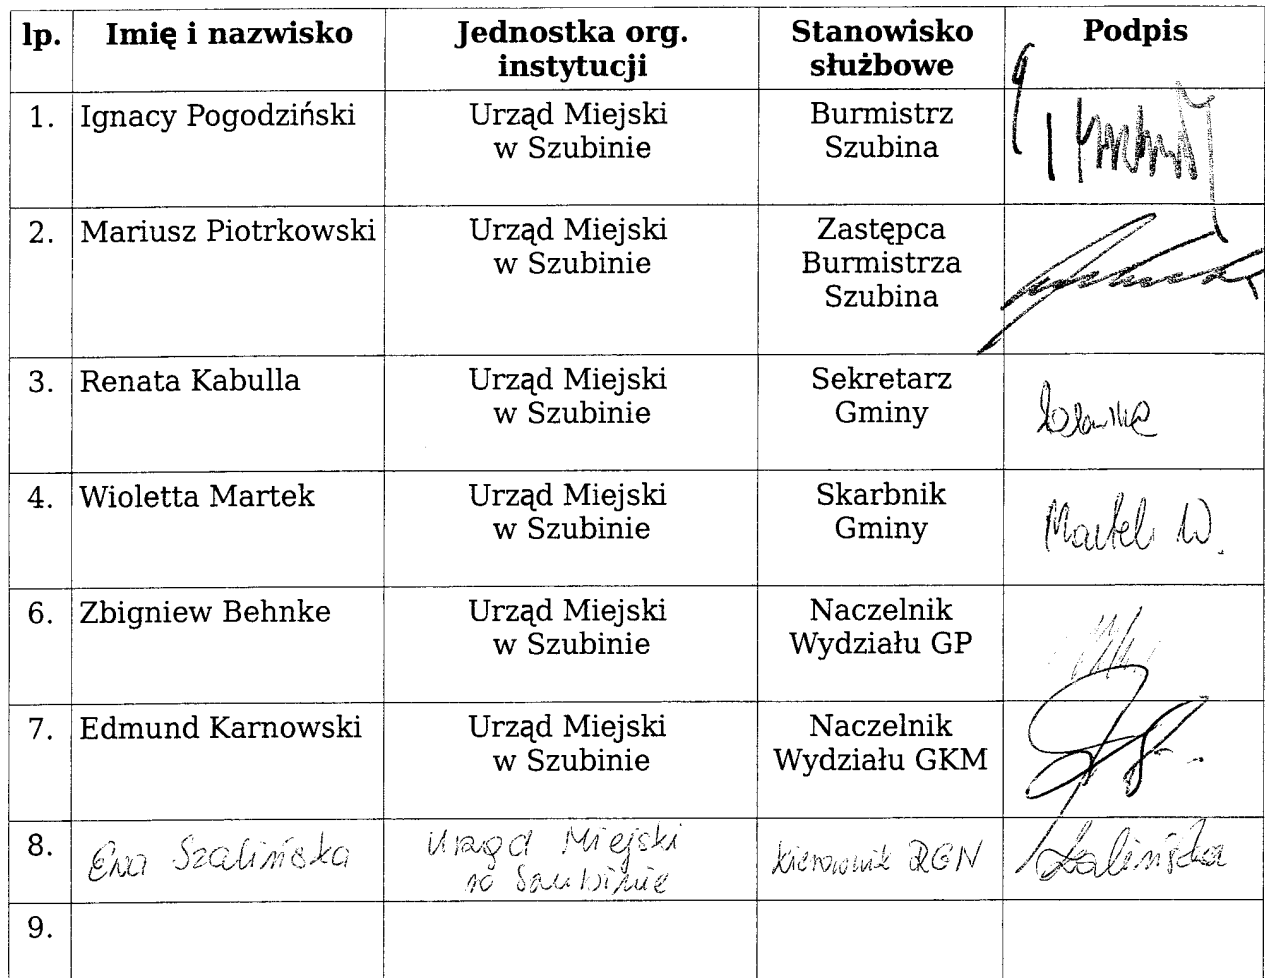 lp. Imię i nazwisko Jednostka org. instytucji Stanowisko służbowe Podpis
1. Ignacy Pogodziński Urząd Miejski w Szubinie Burmistrz Szubina
2. Mariusz Piotrkowski Urząd Miejski w Szubinie Zastępca Burmistrza Szubina
3. Renata Kabulla Urząd Miejski w Szubinie Sekretarz Gminy
4. Wioletta Martek Urząd Miejski w Szubinie Skarbnik Gminy Martek W.
6. Zbigniew Behnke Urząd Miejski w Szubinie Naczelnik Wydziału GP
7. Edmund Karnowski Urząd Miejski w Szubinie Naczelnik Wydziału GKM
8. Ewa Szalińska Urząd Miejski w Szubinie Kierownik RGN Szalińska
9.